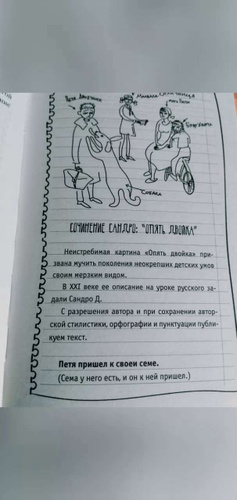 СОБАКА
СОЧИНЕНИЕ САНДРО: "ОПЯТЬ ДВОЙКА"
Неистребимая картина «Опять двойка» при-
звана мучить поколения неокрепших детских умов
своим мерзким видом.
В XXI веке ее описание на уроке русского за-
дали Сандро Д.
С разрешения автора и при сохранении автор-
ской стилистики, орфографии и пунктуации публи-
куем текст.
Петя пришел к своеи семе.
(Сема у него есть, и он к ней пришел.)